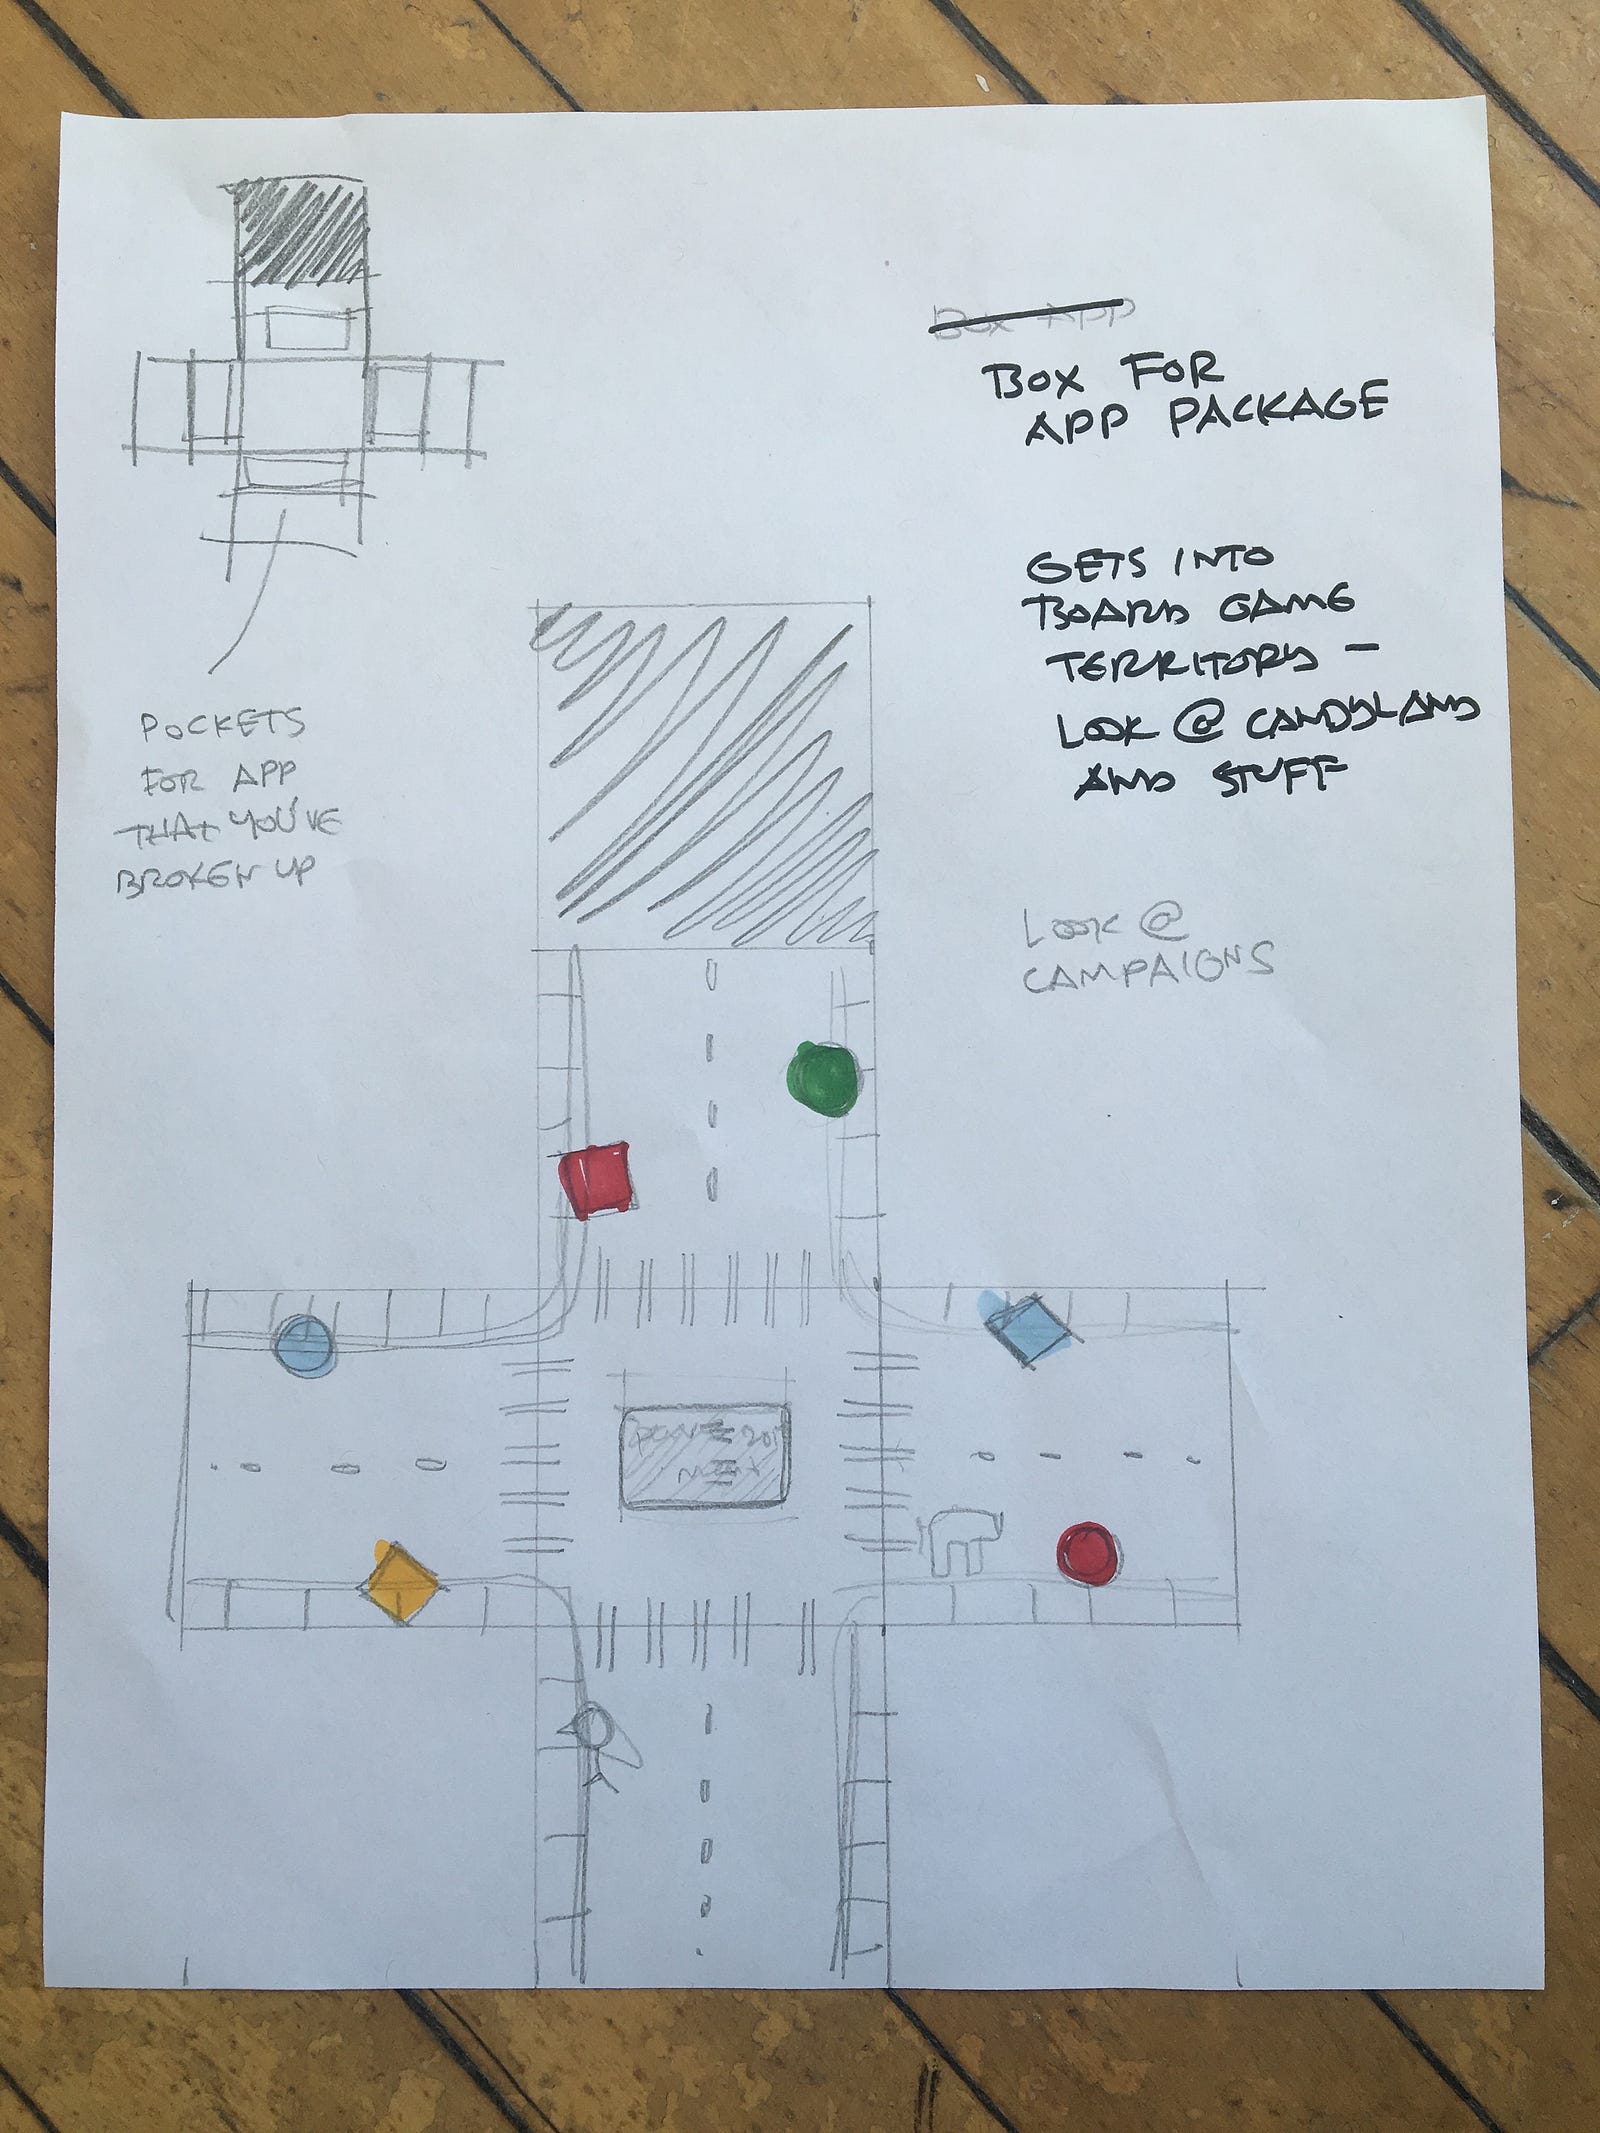 Box APP
BOX FOR
APP PACKAGE
GETS INTO
BOARD GAME
TERRITORY –
LOOK @ CANDYLAND
AND STUFF
LOOK @
CAMPAIGNS
POCKETS
FOR APP
THAT YOU'VE
BROKEN UP